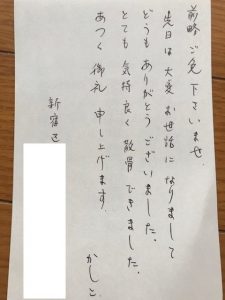 前略ご免下さいませ.
先日は大変お世話になりまして
どうもありがとうございました.
とても気持良く散骨できました.
あつく御礼申し上げます.
かしこ.
新宿区